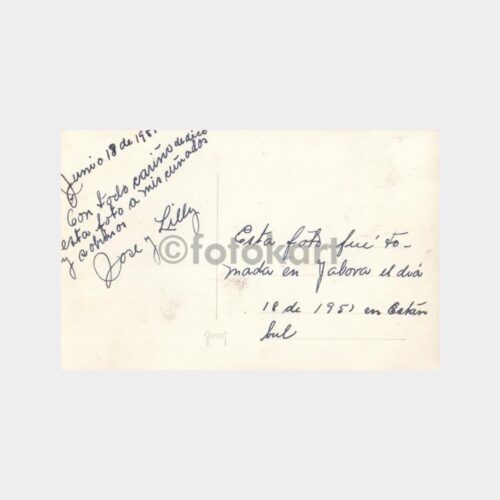 Junio 18 de 195
Con todo cariño dedico
esta foto a mis cuñados
y sobrinos
Jose y Lilly
©fotokart
Esta foto fué to-
mada en Yalova el diá
18 de 1951 en Están
bul